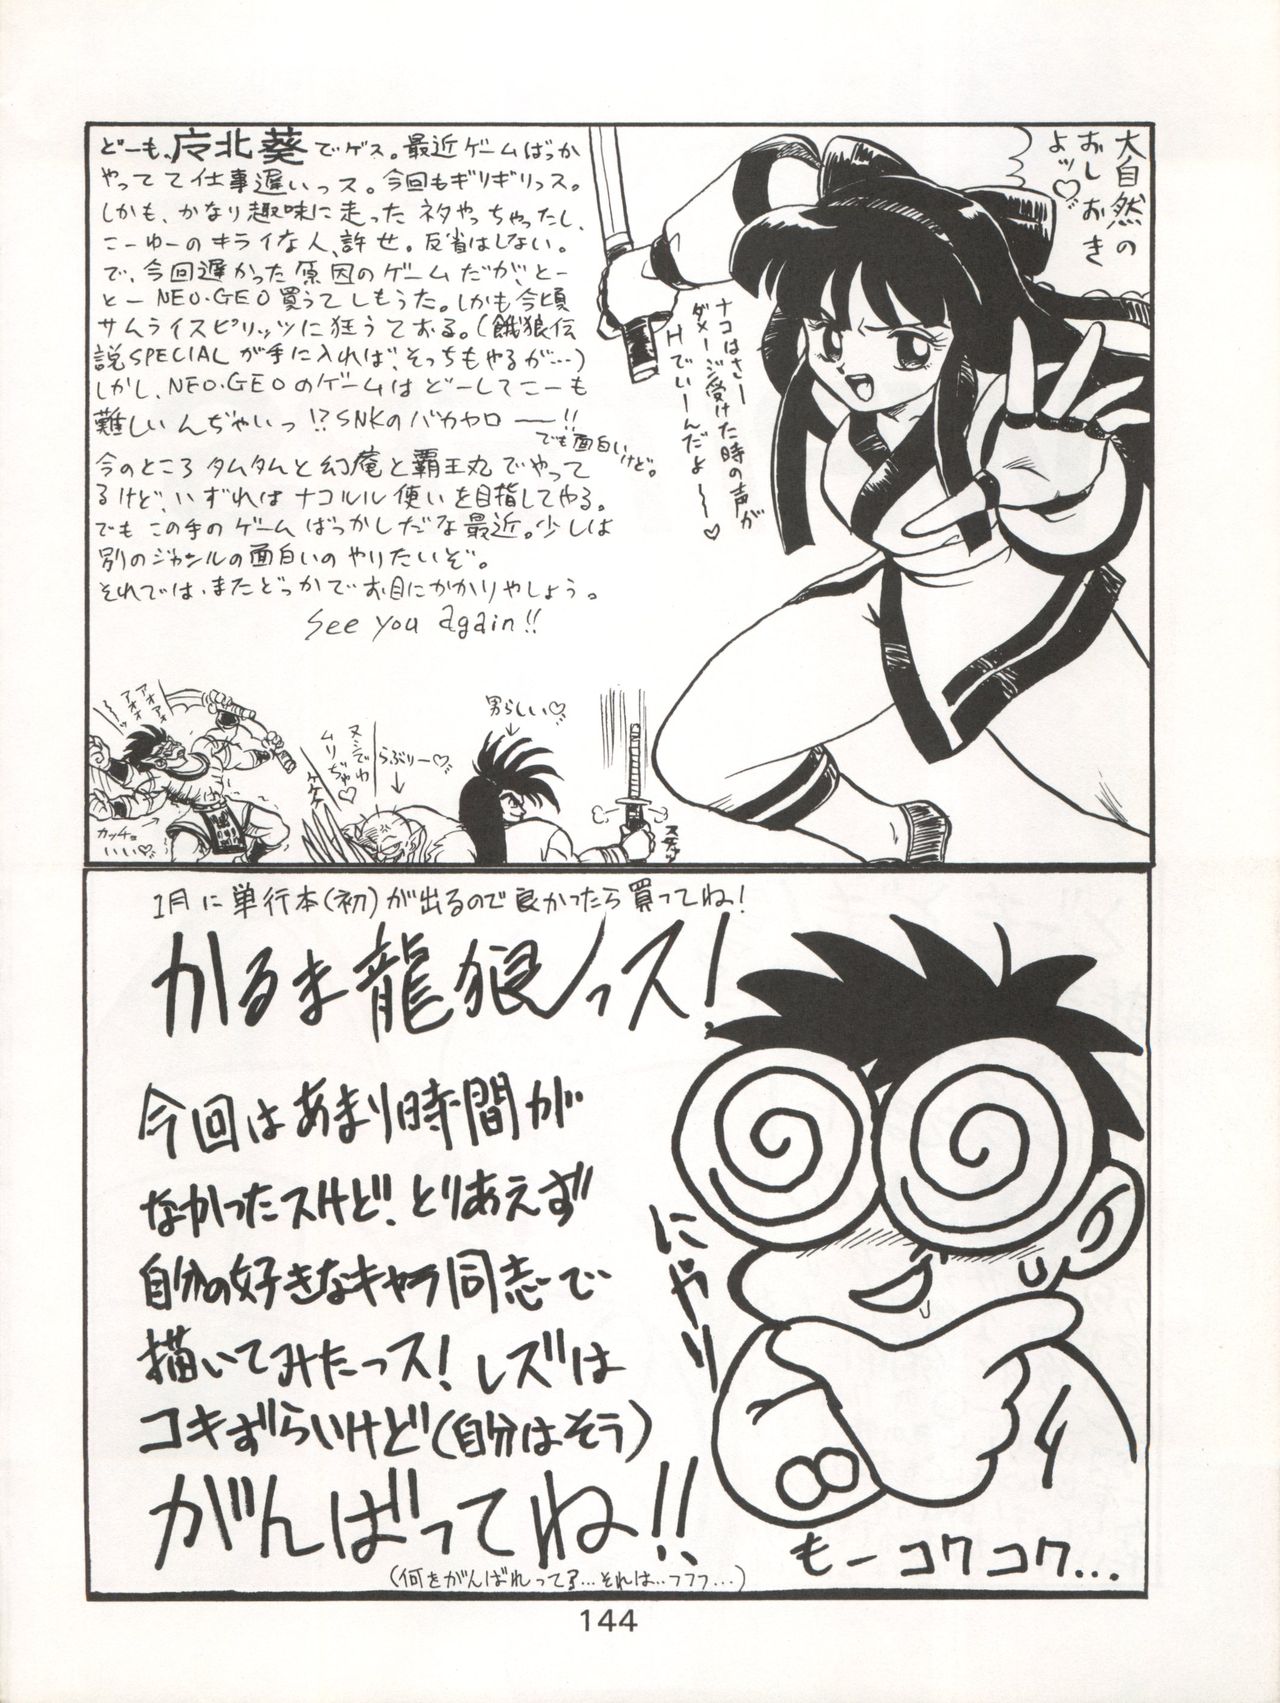 どーも、戸北葵でゲス。最近ゲームばっか
やってて仕事遅いっス。今回もギリギリっス。
しかも、かなり趣味に走ったネタやっちゃったし、
こーゆーのキライな人、許せ。反省はしない。
で、今回遅かった原因のゲームだが、とー
とーNEO・GEO買うてしもうた。しかも今頃
サムライスピリッツに狂うておる。(餓狼伝
説SPECIALが手に入れば、そっちもやるが…)
しかし、NEO・GEOのゲームはどーしてこーも
難しいんぢゃいっ!?SNKのバカヤロ――!!
でも面白いけど。
今のところタムタムと幻庵と覇王丸でやって
るけど、いずれはナコルル使いを目指してやる。
でもこの手のゲームばっかしだな最近。少しは
別のジャンルの面白いのやりたいぞ。
それでは、またどっかでお目にかかりやしょう。
See you again!!
大自然の
おしおき
よッ♡
ナコはさー
ダメージ受けた時の声が
Hでいーんだよ〜♡
アオアオ
カッチョ
いい♡
ヌシでわ
ムリぢゃ♡
ケケケ
らぶりー♡
男らしい♡
スチャッ
1月に単行本(初)が出るので良かったら買ってね!
かるま龍狼っス!
今回はあまり時間が
なかったスけど、とりあえず
自分の好きなキャラ同志で
描いてみたっス!レズは
コキずらいけど(自分はそう)
がんばってね!!
(何をがんばれって?…それは…フフフ…)
にやり
もーコワコワ…
144